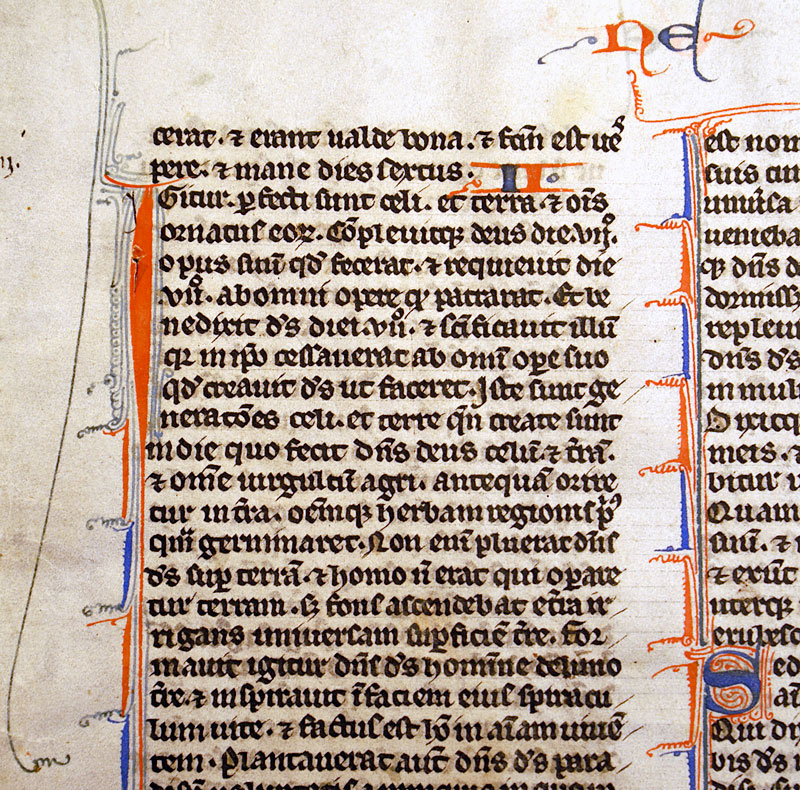 NE
cerat. ⁊ erant ualde bona. ⁊ fc̄m est ues̄
pere. ⁊ mane dies sextus. II.
Gitur. ꝑfecti sunt celi. et terra. ⁊ om̄s
ornatus eoꝝ. Cōpleuitq; deus die. vijº.
opus suū qd̄ fecerat. ⁊ requieuit die
.vijº. ab omni opere qd̄ patrarat. Et be
nedixit ds̄ diei .vijº. ⁊ scīficauit illū
qr in ip̄o cessauerat ab omī oꝑe suo
qd̄ creauit ds̄ ut faceret. Iste sunt ge
neratōes celi. et terre qn̄ create sunt
in die quo fecit dn̄s deus celū. ⁊ tr̄ā.
⁊ om̄e uirgultū agri. antequā orire
tur in tr̄a. oēmq; herbam regionis pͥ
qͣm germinaret. Non enī pluerat dn̄s
ds̄ suꝑ terrā. ⁊ homo n̄ erat qui oꝑare
tur terram. sꝫ fons ascendebat et̄ra ir
rigans uniuersam suꝑficiē tr̄e. For
mauit igitur dn̄s ds̄ homīne de limo
tr̄e. ⁊ inspirauit ī faciem eius spiracu
lum uite. ⁊ factus est hō in aīam uiuē
tem. Plantauerat aut̄ dn̄s ds̄ para
est nom
suis cu
uniūsa
ueniеba
qꝫ dn̄s d
dormiss
repleui
dn̄s ds̄
in mul
Dixitq
meis. ⁊
bitur u
Quam
suū. ⁊
⁊ erūt
uterqꝫ
erubesc
Sed
aī
Qui di
bis ds̄